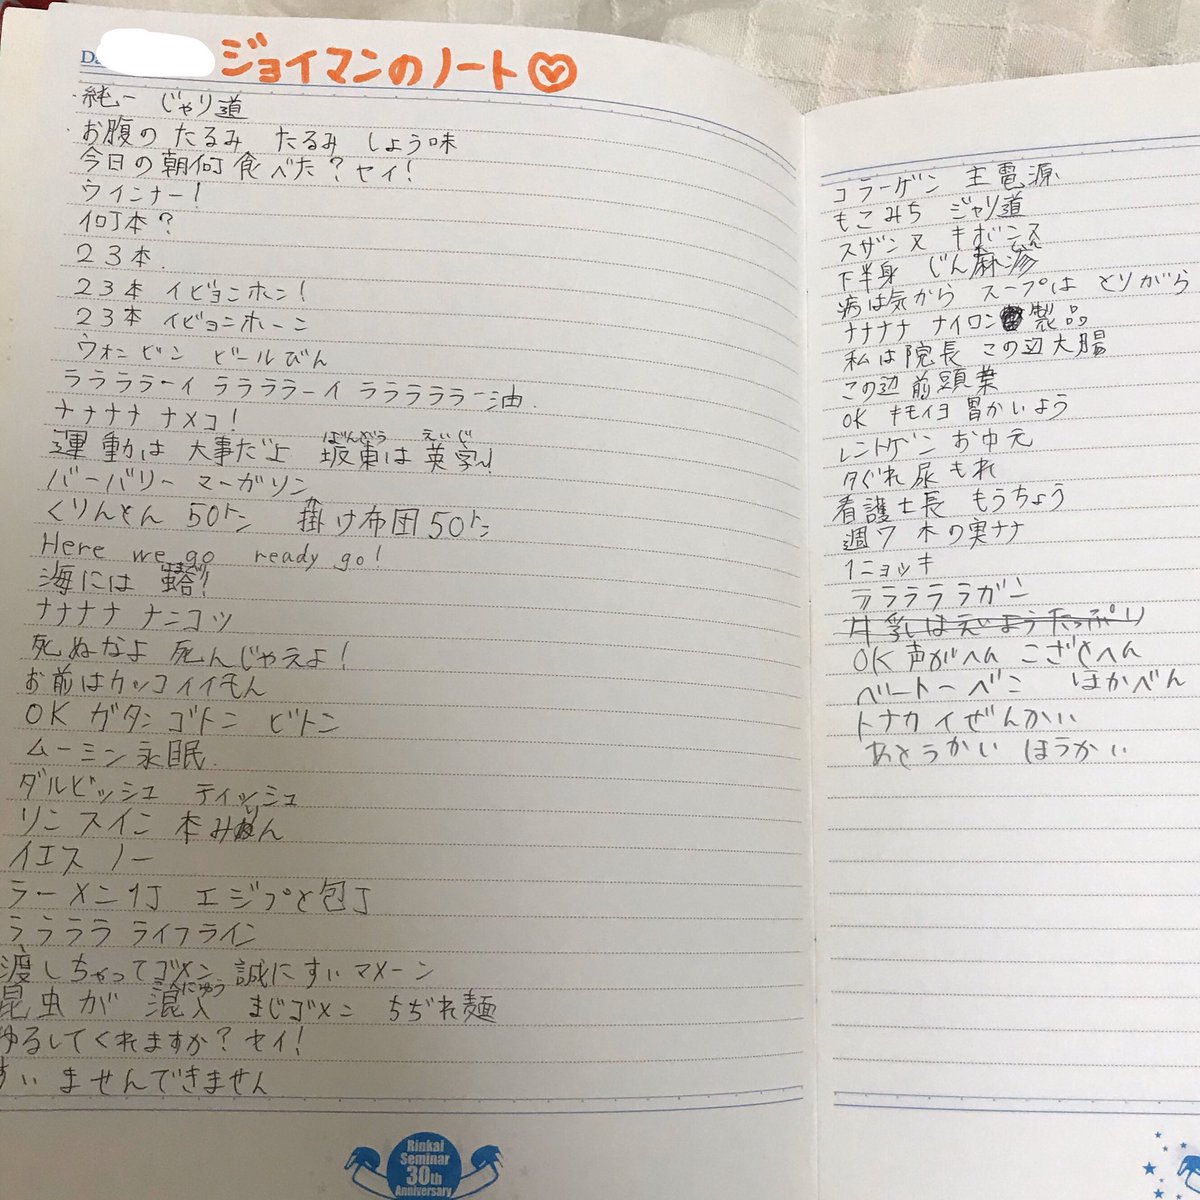 Da
ジョイマンのノート
純一 じゃり道
お腹の たるみ たるみ しょう味
今日の朝何食べた？セイ！
ウインナー！
何本？
２３本.
２３本 イビョンホン！
２３本 イビョンホーン
ウォンビン ビールびん
ララララーイ ララララーイ ラララララー油.
ナナナナ ナメコ！
運動は 大事だよ 坂東は 英字！
ばんどう えいじ
バーバリー マーガリン
くりんとん 50トン 掛け布団50トン
Here we go ready go!
海には 蛤！
はまぐり
ナナナナ ナンコツ
死ぬなよ 死んじゃえよ！
お前はカッコイイモん
OK ガタン ゴトン ビトン
ムーミン永眠.
ダルビッシュ ティッシュ
リン スイン 本みりん
イエス ノー
ラーメン 1丁 エジプと包丁
ララララ ライフライン
渡しちゃってゴメン 誠にすいマメーン
昆虫が 混入 まじゴメン ちぢれ麺
こんにゅう
ゆるしてくれますか？セイ！
すい ませんできません
Rinkai
Seminar
30th
Anniversary
コラーゲン 主電源
もこみち ジャリ道
スザンヌ キボンヌ
下半身 じん麻疹
病は気から スープは とりがら
ナナナナ ナイロン 製品
私は院長 この辺大腸
この辺 前頭葉
OK キモイヨ 胃かいよう
レントゲン お中元
夕ぐれ 尿もれ
看護士長 もうちょう
週7 木の実ナナ
1ニョッキ
ララララ ラガン
牛乳はえいようたっぷり
OK 声がへん こざとへん
ベートーベン ほかべん
トナカイぜんかい
あとうかい ほうかい